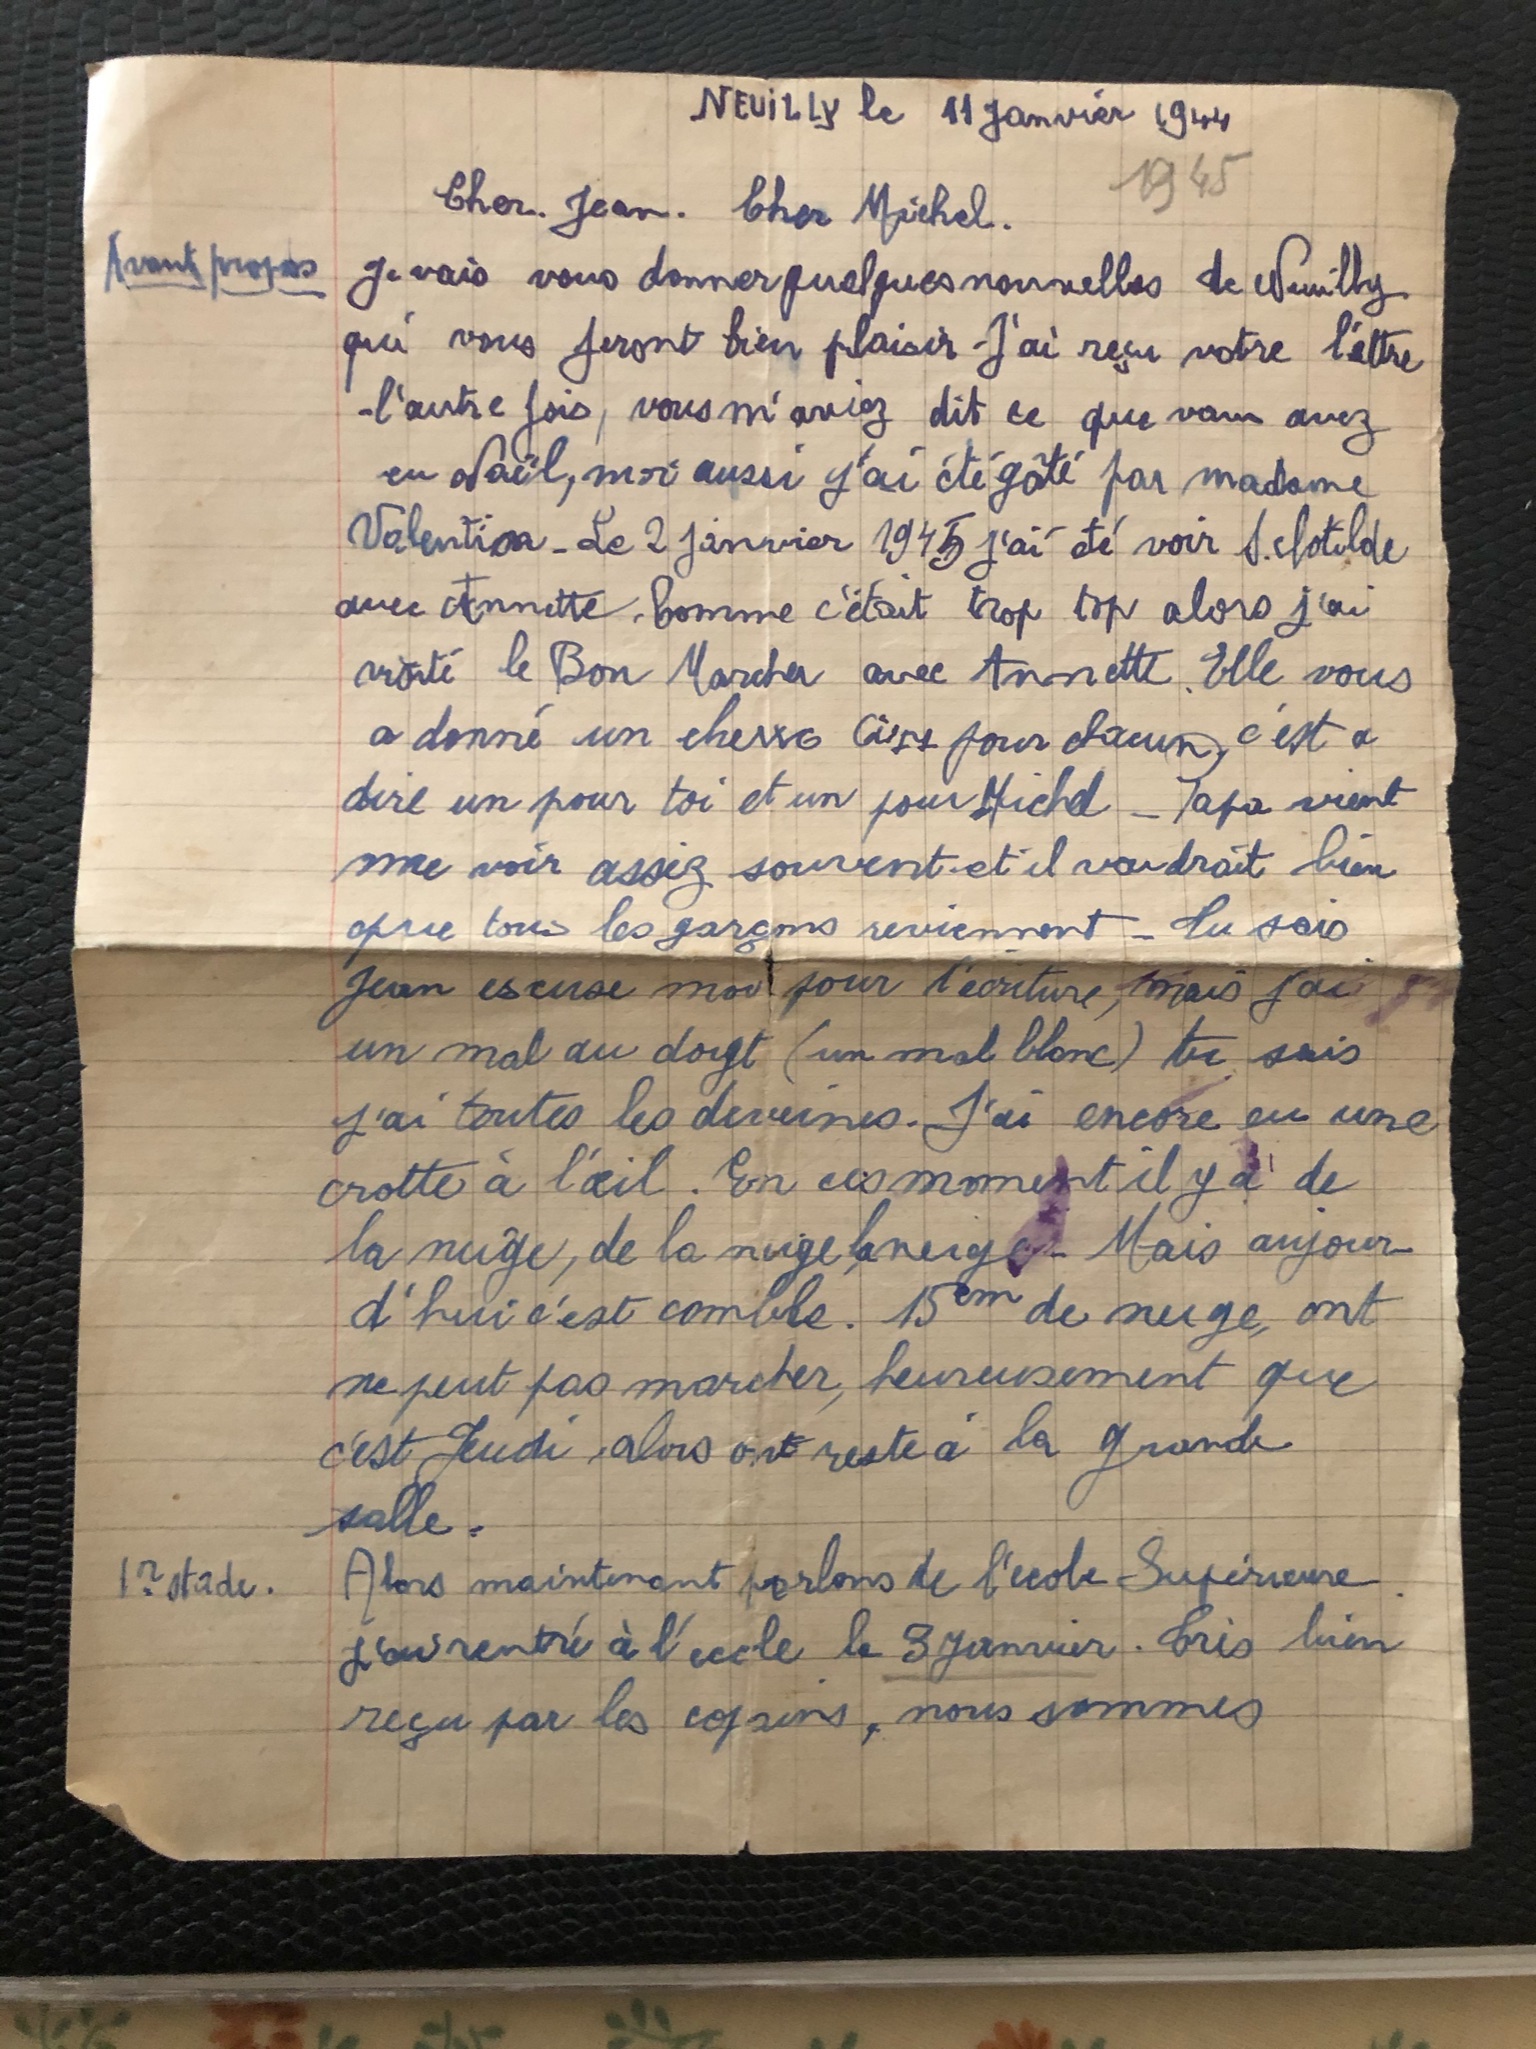 NEUILLY le 11 Janvier 1944
1945
Cher. Jean. Cher Michel.
Avant propos
Je vais vous donner quelques nouvelles de Neuilly
qui vous feront bien plaisir - J'ai reçu votre léttre
l'autre fois, vous m'aviez dit ce que vous avez
eu Noël, moi aussi j'ai été gâté par madame
Valentina - Le 2 janvier 1945 j'ai été voir S. Clotilde
avec Annette. Comme c'était trop top alors j'ai
visité le Bon Marcher avec Annette. Elle vous
a donné un chesse pour chacun, c'est a
dire un pour toi et un pour Michel - Papa vient
me voir assez souvent et il voudrait bien
que tous les garçons reviennent - Tu sais
Jean escuse moi pour l'écriture, mais j'ai
un mal au doigt (un mal blanc) tu sais
j'ai toutes les deveines. J'ai encore eu une
crotte à l'œil. En ces moment il y a de
la neige, de la neige, la neige - Mais aujour-
d'hui c'est comble. 15cm de neige, ont
ne peut pas marcher, heureusement que
c'est Jeudi, alors ont reste à la grande
salle.
1r stade.
Alors maintenant parlons de l'école Supérieure
j'ai rentré à l'école le 3 Janvier. Tris bien
reçu par les copains, nous sommes